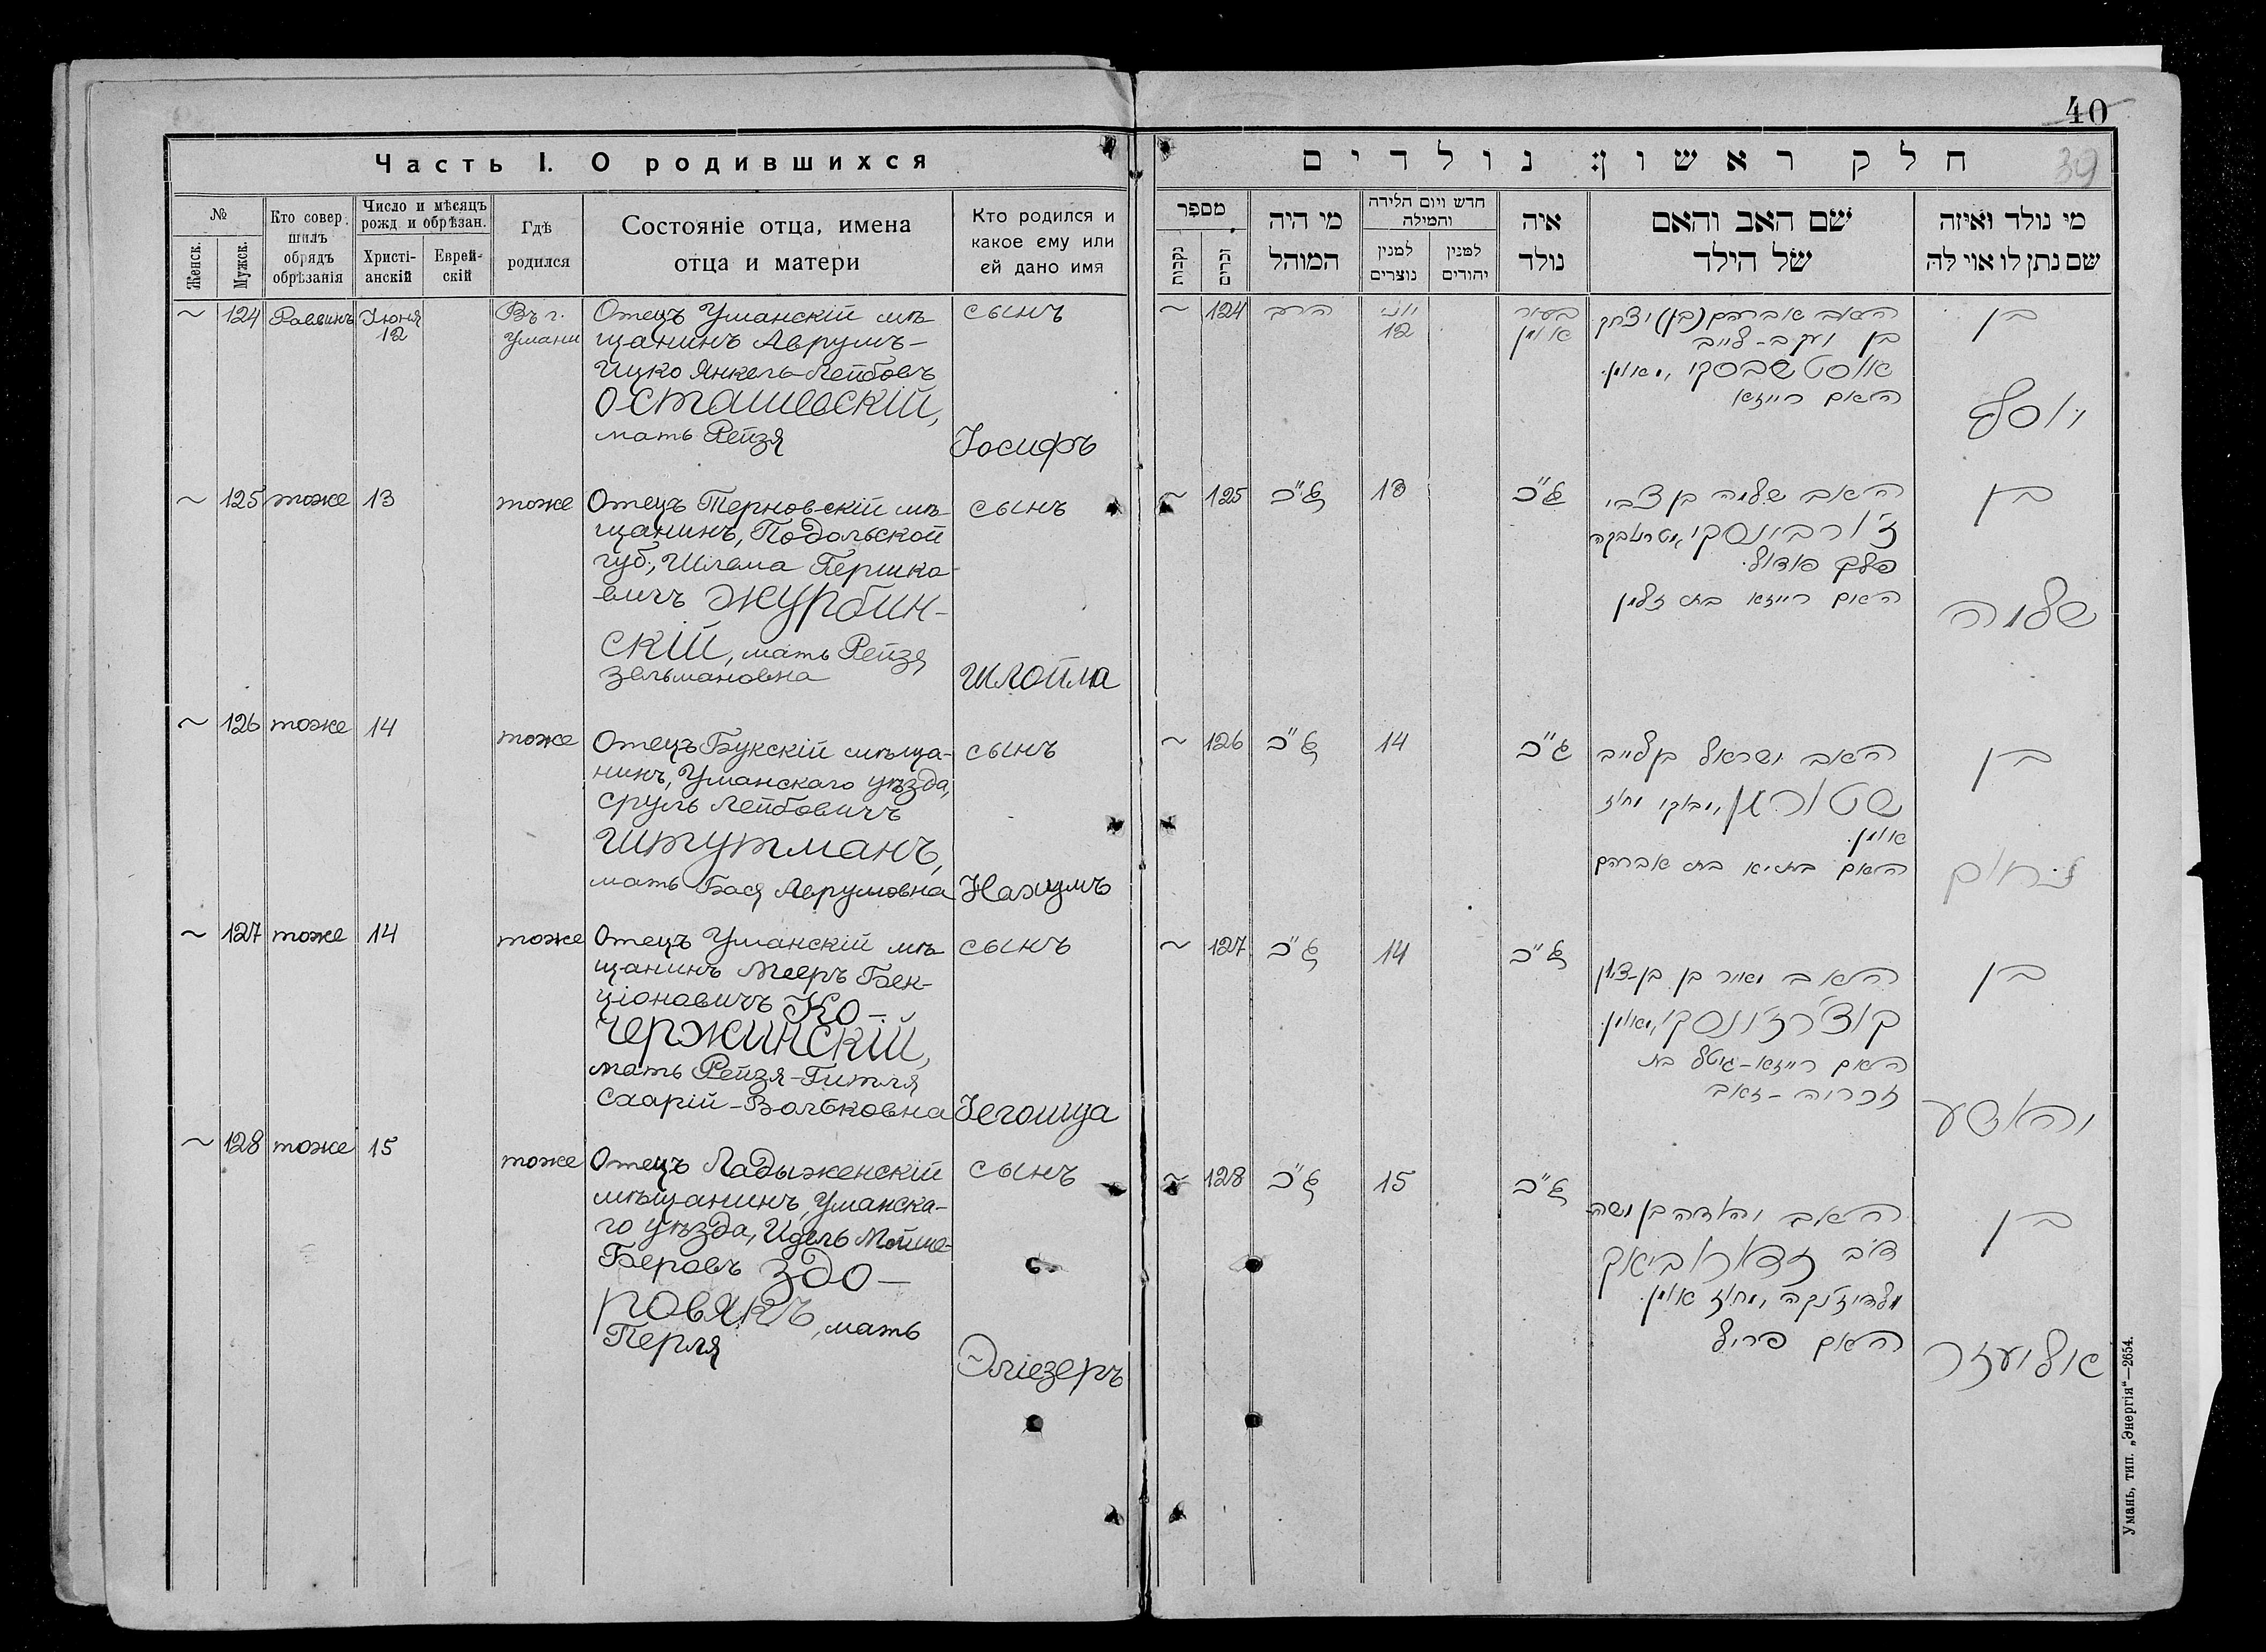 Часть I. О родившихся
№
Женск.
Мужск.
Кто совер-
шилъ
обрядъ
обрѣзанія
Число и мѣсяцъ
рожд. и обрѣзан.
Христі-
анскій
Еврей-
скій
Гдѣ
родился
Состояніе отца, имена
отца и матери
Кто родился и
какое ему или
ей дано имя
~ 124 Раввинъ Іюня 12 Въ г. Умани
Отецъ Уманскій мѣ-
щанинъ Аврумъ-
Ицко Янкель-Лейбовъ
Осташевскій,
мать Рейзя
сынъ
Іосифъ
~ 125 тоже 13 тоже
Отецъ Терновскій мѣ-
щанинъ, Подольской
губ., Шлема Гершко-
вичъ Журбин-
скій, мать Рейзя
Зельмановна
сынъ
Шлойма
~ 126 тоже 14 тоже
Отецъ Букскій мѣща-
нинъ, Уманскаго уѣзда,
Сруль Лейбовичъ
Штутманъ,
мать Бася Аврумовна
сынъ
Нахумъ
~ 127 тоже 14 тоже
Отецъ Уманскій мѣ-
щанинъ Мееръ Бен-
ціоновичъ Ко-
чержинскій,
мать Рейзя-Гитля
Схарій-Вольковна
сынъ
Іегошуа
~ 128 тоже 15 тоже
Отецъ Ладыженскій
мѣщанинъ, Уманска-
го уѣзда, Идель Мойше-
Беровъ Здо-
ровякъ, мать
Перля
сынъ
Эліезеръ
40
39
חלק ראשון: נולדים
מספר
נקבות
זכרים
מי היה
המוהל
חדש ויום הלידה
והמילה
למנין
נוצרים
למנין
יהודים
איה
נולד
שם האב והאם
של הילד
מי נולד ואיזה
שם נתן לו או לה
~ 124 הרב יוני 12 בעיר אומן
האב אברהם (בן) יצחק
בן יעקב-לייב
אוסטשבסקי, מאומן.
האם רייזא
בן
יוסף
~ 125 ג"כ 13 ג"כ
האב שלמה בן צבי
ז'ורבינסקי, מטרנובקה
פלך פודול.
האם רייזא בת זלמן
בן
שלמה
~ 126 ג"כ 14 ג"כ
האב ישראל בן לייב
מבוקי מחוז
אומן.
האם בתיא בת אברהם
בן
נחום
~ 127 ג"כ 14 ג"כ
האב מאיר בן בן-ציון
קוצ'רז'ינסקי, מאומן.
האם רייזא-גיטל בת
זכריה-זאב
בן
יהושע
~ 128 ג"כ 15 ג"כ
האב יהודה בן משה
דוב זדארוביאק
מלדיז'נקה, מחוז אומן.
האם פריל
בן
אליעזר
Умань, тип. „Энергія“—2654.